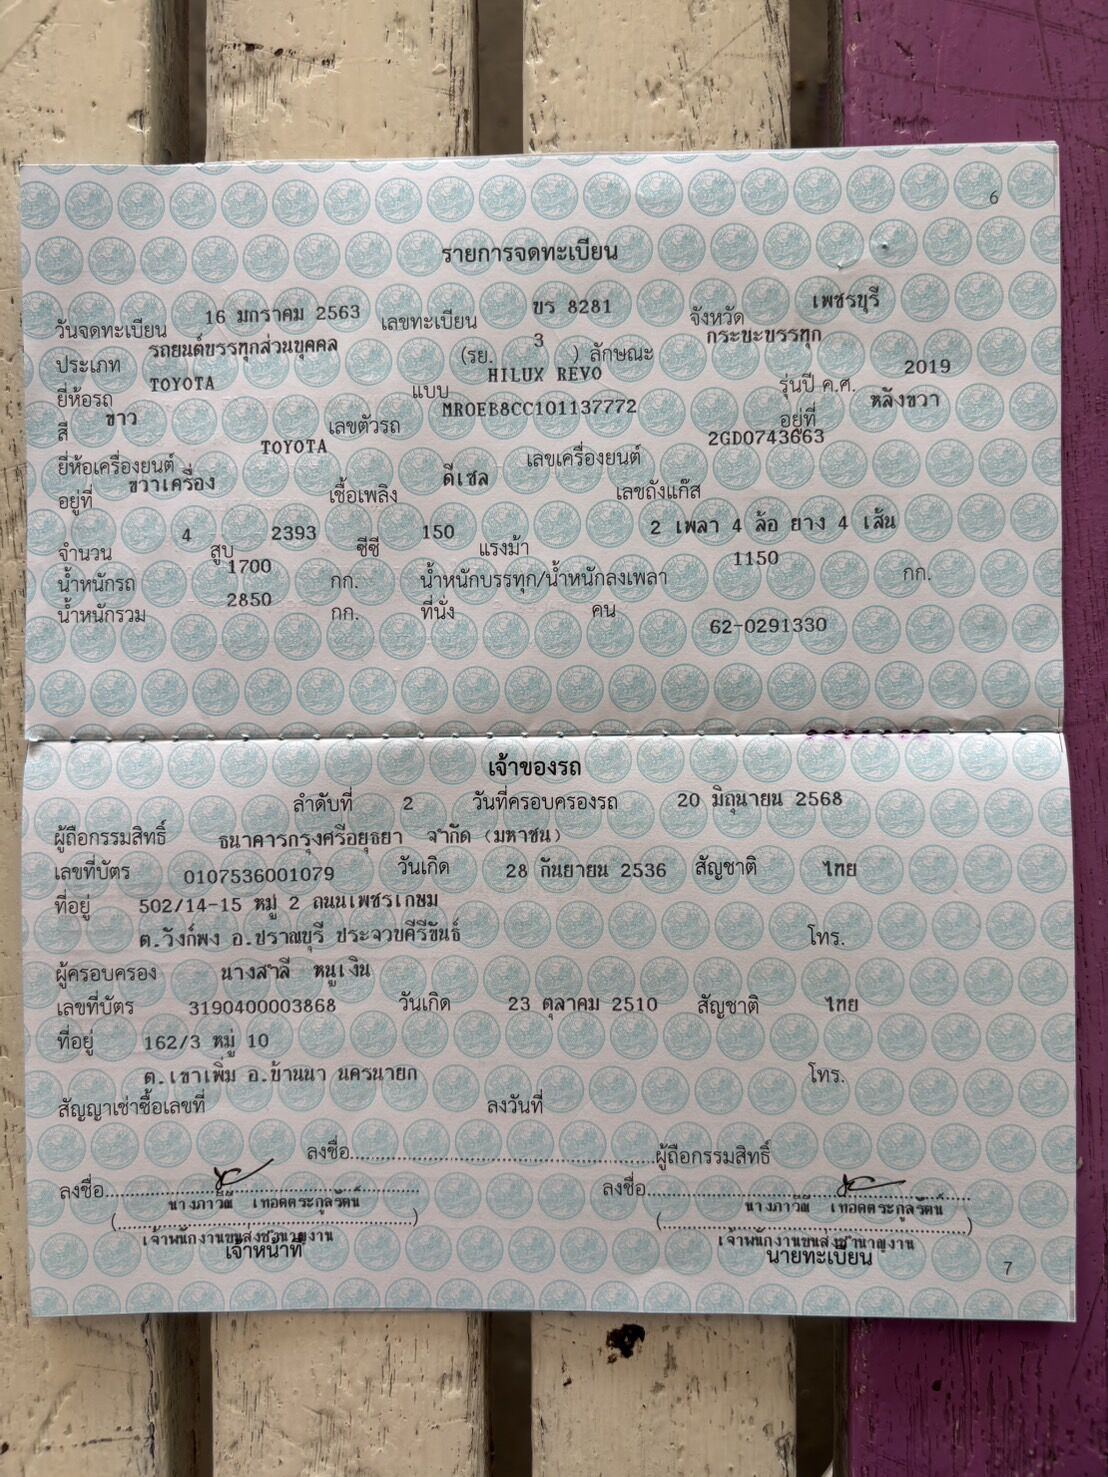 6
รายการจดทะเบียน
วันจดทะเบียน 16 มกราคม 2563 เลขทะเบียน ขร 8281 จังหวัด เพชรบุรี
ประเภท รถยนต์บรรทุกส่วนบุคคล (รย. 3 ) ลักษณะ กระบะบรรทุก
ยี่ห้อรถ TOYOTA แบบ HILUX REVO รุ่นปี ค.ศ. 2019
สี ขาว เลขตัวรถ MR0EB8CC101137772 อยู่ที่ หลังขวา
ยี่ห้อเครื่องยนต์ TOYOTA เลขเครื่องยนต์ 2GD0743663
อยู่ที่ ขวาเครื่อง เชื้อเพลิง ดีเซล เลขถังแก๊ส
จำนวน 4 สูบ 2393 ซีซี 150 แรงม้า 2 เพลา 4 ล้อ ยาง 4 เส้น
น้ำหนักรถ 1700 กก. น้ำหนักบรรทุก/น้ำหนักลงเพลา 1150 กก.
น้ำหนักรวม 2850 กก. ที่นั่ง คน
62-0291330
เจ้าของรถ
ลำดับที่ 2 วันที่ครอบครองรถ 20 มิถุนายน 2568
ผู้ถือกรรมสิทธิ์ ธนาคารกรุงศรีอยุธยา จำกัด (มหาชน)
เลขที่บัตร 0107536001079 วันเกิด 28 กันยายน 2536 สัญชาติ ไทย
ที่อยู่ 502/14-15 หมู่ 2 ถนนเพชรเกษม
ต.วังก์พง อ.ปราณบุรี ประจวบคีรีขันธ์ โทร.
ผู้ครอบครอง นางสาลี หนูเงิน
เลขที่บัตร 3190400003868 วันเกิด 23 ตุลาคม 2510 สัญชาติ ไทย
ที่อยู่ 162/3 หมู่ 10
ต.เขาเพิ่ม อ.บ้านนา นครนายก โทร.
สัญญาเช่าซื้อเลขที่ ลงวันที่
ลงชื่อ..........ผู้ถือกรรมสิทธิ์
ลงชื่อ.......... ลงชื่อ..........
(นางภาวิณี เทอดตระกูลรัตน์) (นางภาวิณี เทอดตระกูลรัตน์)
เจ้าพนักงานขนส่งชำนาญงาน เจ้าพนักงานขนส่งชำนาญงาน
เจ้าหน้าที่ นายทะเบียน
7